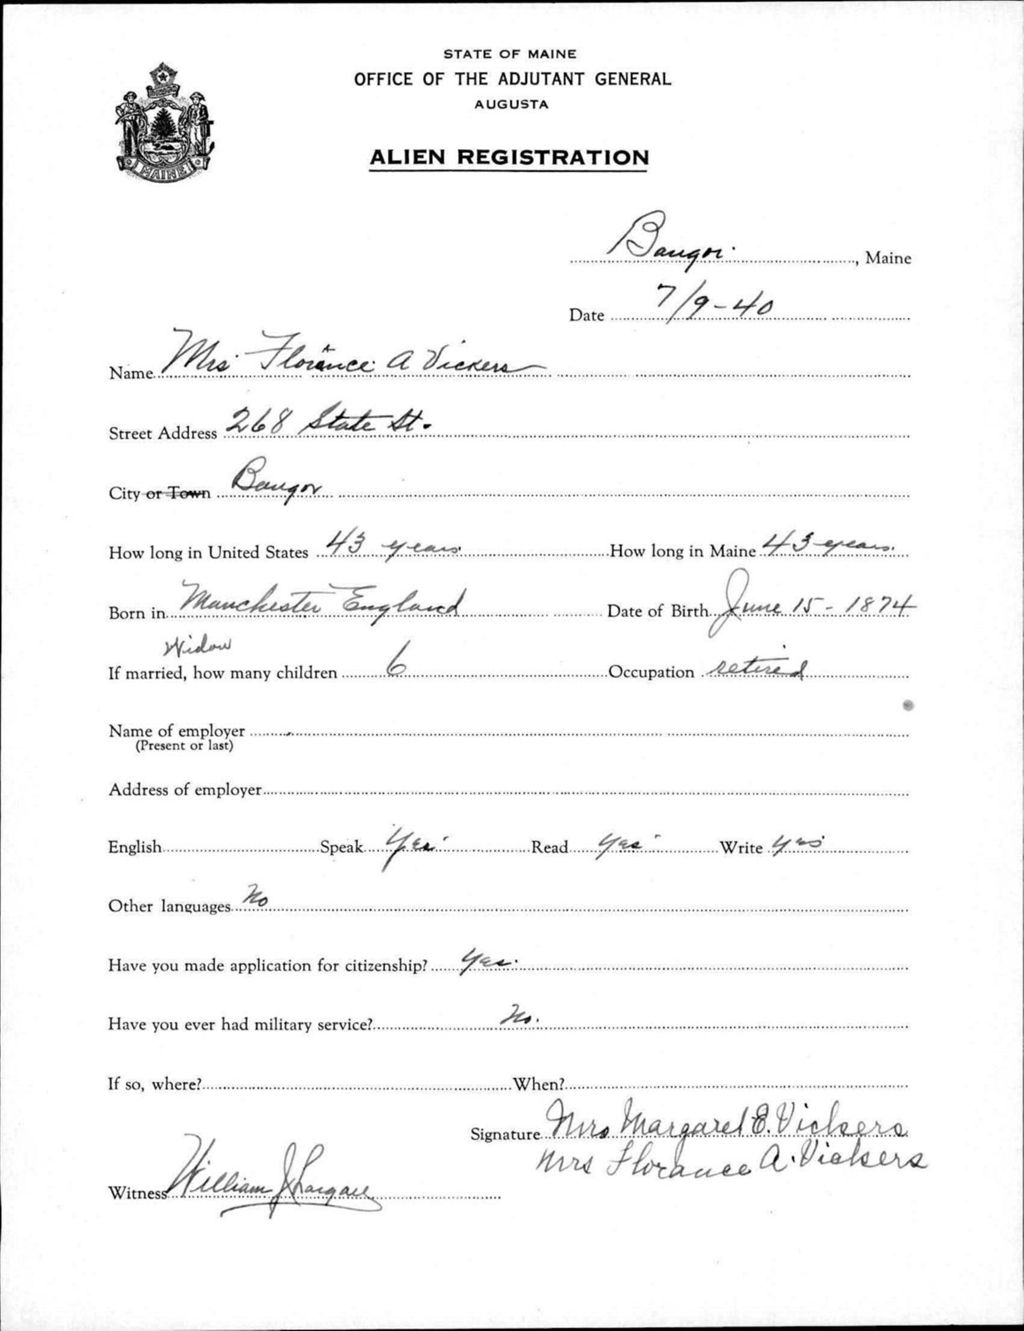 STATE OF MAINE
OFFICE OF THE ADJUTANT GENERAL
AUGUSTA
ALIEN REGISTRATION
MAINE
Bangor, Maine
Date 7/9-40
Name Mrs Florance A Vickers
Street Address 268 State St.
City or Town Bangor
How long in United States 43 years How long in Maine 43 years.
Born in Manchester England Date of Birth June 15 - 1874
Widow
If married, how many children 6 Occupation retired
Name of employer
(Present or last)
Address of employer
English Speak Yes Read Yes Write Yes
Other languages No
Have you made application for citizenship? Yes.
Have you ever had military service? No.
If so, where? When?
Signature Mrs Margaret E. Vickers
Mrs Florance A. Vickers
Witness William J